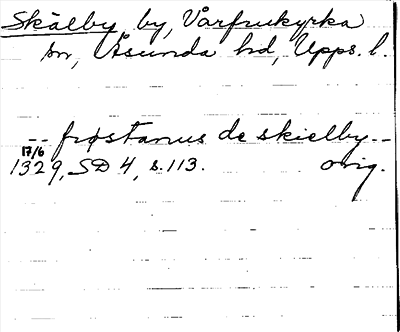 Skälby, by, Vårfrukyrka
sn, Åsunda hd, Upps. l.
-- frøstanus de skielby --
17/6
1329, SD 4, s. 113. orig.